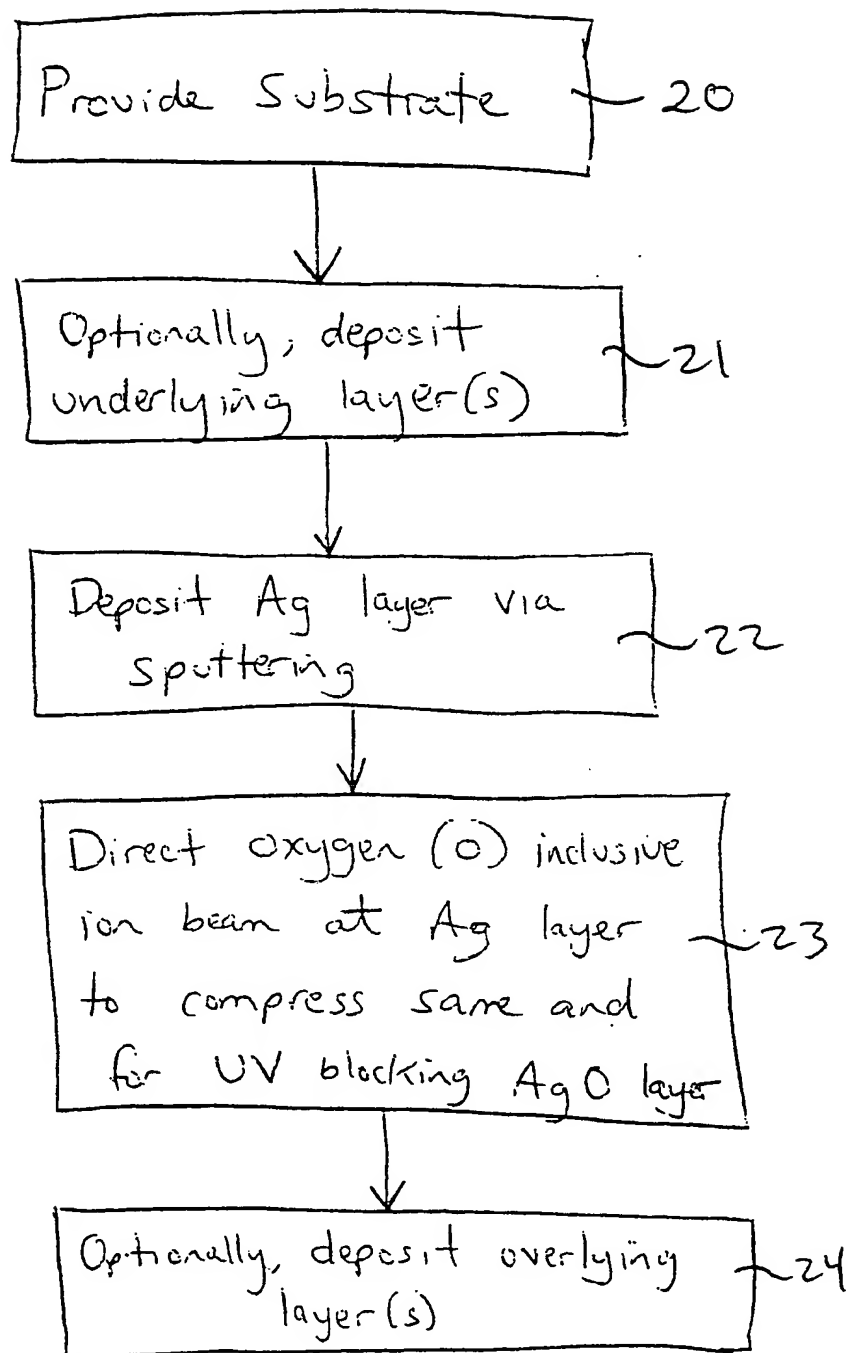 Provide Substrate 20
Optionally, deposit
underlying layer(s) 21
Deposit Ag layer via
sputtering 22
Direct oxygen (O) inclusive
ion beam at Ag layer 23
to compress same and
for UV blocking AgO layer
Optionally, deposit overlying 24
layer(s)